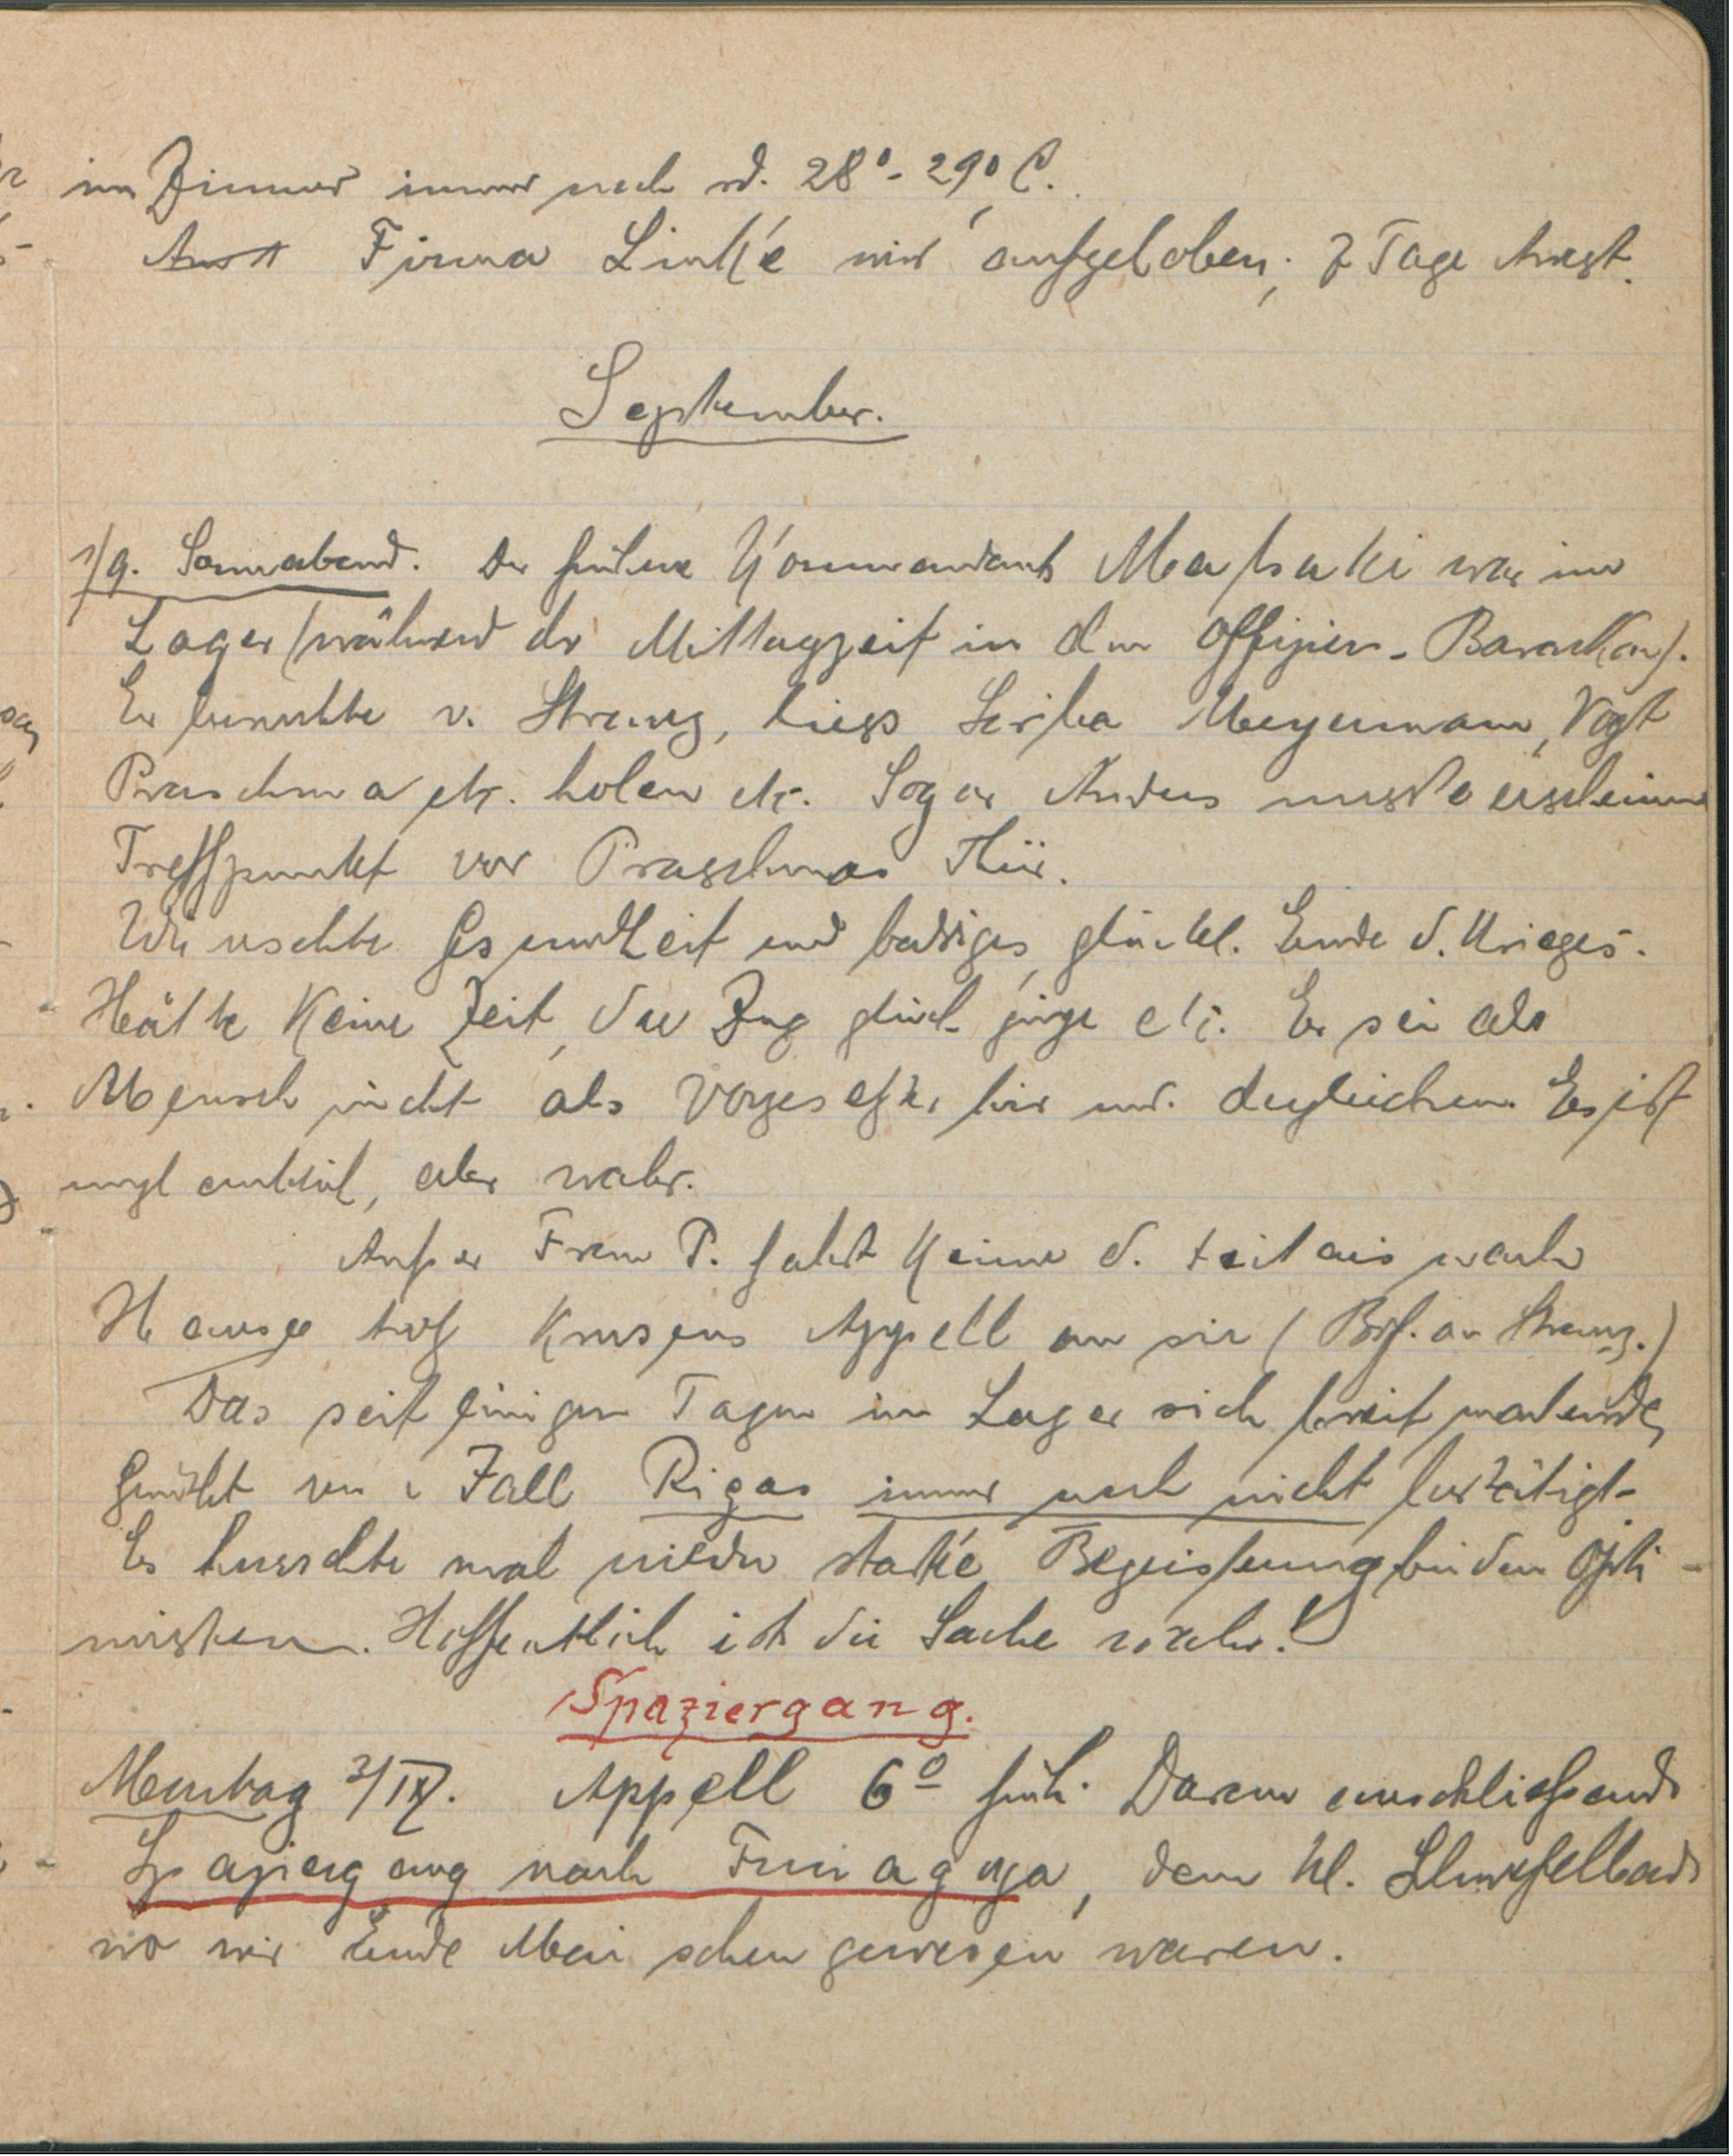 im Zimmer immer noch rd. 28°- 29° C.
Arrest Firma Linke wird aufgehoben; 7 Tage Arrest.
September.
1/9. Sonnabend. Der frühere Kommandant Matsuki war im
Lager (während der Mittagzeit in den Offizier-Baracken).
Er besuchte v. Strenz, liess Scriba Meyermann, Vogt
Praschma etc. holen etc. Sogar Anders musste erscheinen
Treffpunkt vor Praschmas Thür.
Wünschte Gesundheit und baldiges, glückl. Ende d. Krieges.
Hätte keine Zeit, der Zug gleich ginge etc. Er sei als
Mensch nicht als Vorgesetzter hier und dergleichen. Es ist
unglaublich, aber wahr.
Außer Frau P. fährt keine d. nach
Hause trotz Krusens Appell an sie (Brf. an Strenz.)
Das seit einigen Tagen im Lager sich breit machende,
Gerücht von Fall Rigas immer noch nicht bestätigt-
Es herrschte mal wieder starke Begeisterung bei den Opti-
misten. Hoffentlich ist die Sache wahr!
Spaziergang.
Montag 3/IX. Appell 6° früh. Daran anschließend
Spaziergang nach , dem kl. Schwefelbad
wo wir Ende Mai schon gewesen waren.